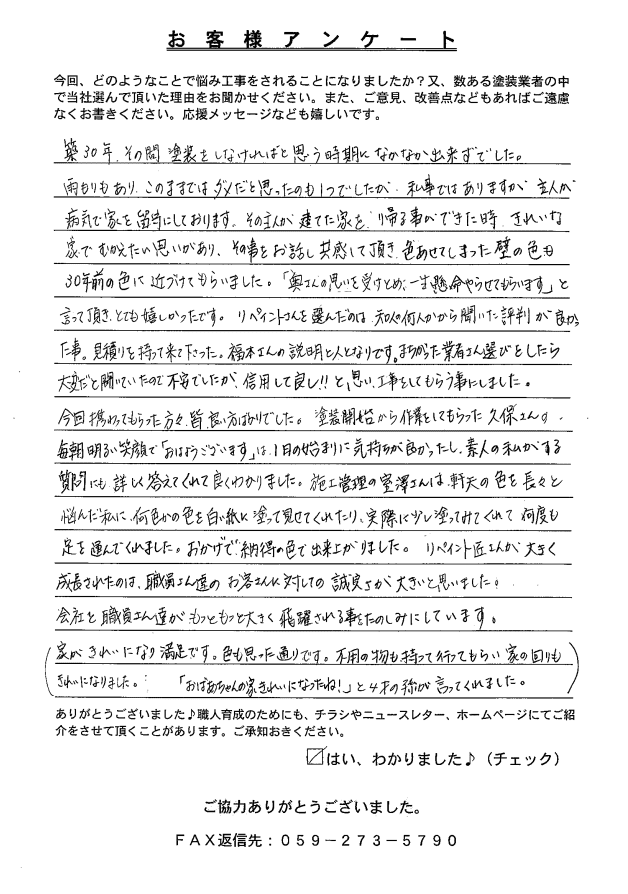 お客様アンケート
今回、どのようなことで悩み工事をされることになりましたか？又、数ある塗装業者の中
で当社選んで頂いた理由をお聞かせください。また、ご意見、改善点などもあればご遠慮
なくお書きください。応援メッセージなども嬉しいです。
築30年、その間塗装をしなければと思う時期になかなか出来ずでした。
雨もりもあり、このままではダメだと思ったのも1つでしたが、私事ではありますが主人が
病気で家を留守にしております。その主人が建てた家を、帰る事ができた時、きれいな
家でむかえたい思いがあり、その事をお話し共感して頂き、色あせてしまった壁の色も
30年前の色に近づけてもらいました。「奥さんの思いを受けとめ、一生懸命やらせてもらいます」と
言って頂き、とても嬉しかったです。リペイントさんを選んだのは、知人の何人かから聞いた評判が良かっ
た事。見積りを持って来て下さった。福本さんの説明と人となりです。まちがった業者さん選びをしたら
大変だと聞いていたので不安でしたが、信用して良し!!と思い、工事をしてもらう事にしました。
今回携わってもらった方々、皆、良い方ばかりでした。塗装開始から作業をしてもらった久保さん。
毎朝明るい笑顔で「おはようございます」は、1日の始まりに気持ちが良かったし、素人の私がする
質問にも、詳しく答えてくれて良くわかりました。施工管理の室澤さんは、軒天の色を長々と
悩んだ私に、何色かの色を白い紙に塗って見せてくれたり、実際に少し塗ってみてくれて何度も
足を運んでくれました。おかげで納得の色で出来上がりました。リペイント匠さんが大きく
成長されたのは、職員さん達のお客さんに対しての誠実さが大きいと思いました。
会社と職員さん達がもっともっと大きく飛躍される事をたのしみにしています。
（家がきれいになり満足です。色も思った通りです。不用の物も持って行ってもらい家の回りも
きれいになりました。「おばあちゃんの家きれいになったね！」と4才の孫が言ってくれました。）
ありがとうございました♪職人育成のためにも、チラシやニュースレター、ホームページにてご紹
介をさせて頂くことがあります。ご承知おきください。
☑はい、わかりました♪（チェック）
ご協力ありがとうございました。
ＦＡＸ返信先：０５９－２７３－５７９０